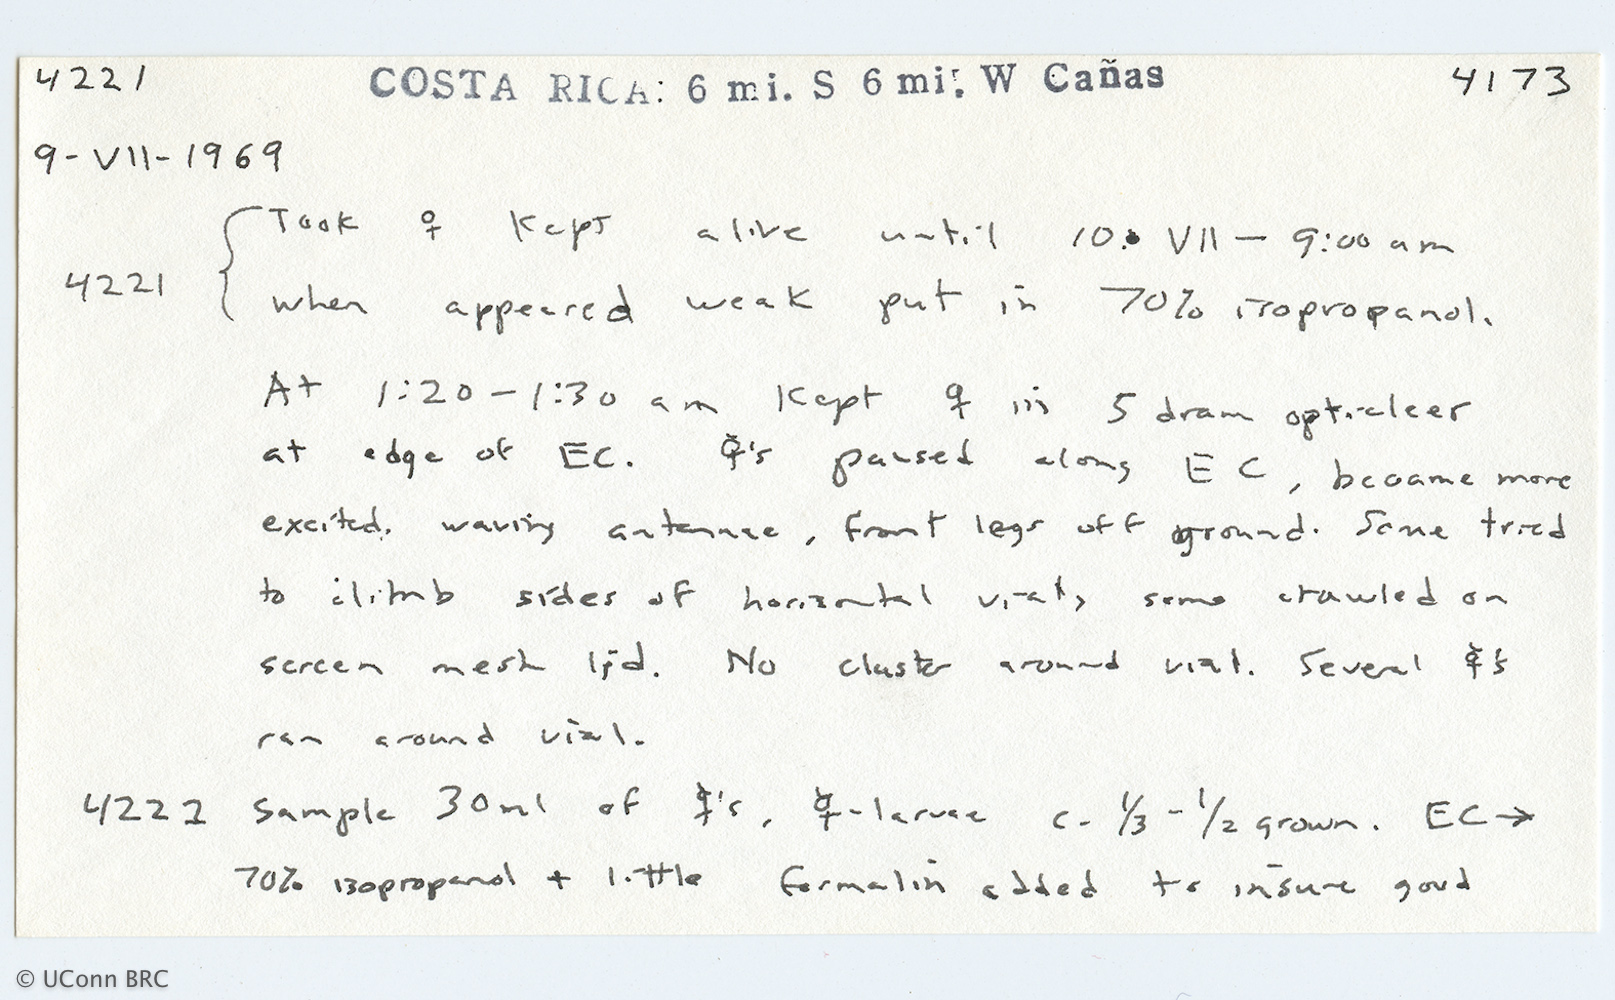 4221 COSTA RICA: 6 mi. S 6 mi. W Cañas 4173
9-VII-1969
Took ♀ Kept alive until 10. VII — 9:00 am
4221
when appeared weak put in 70% isopropanol.
At 1:20-1:30 am Kept ♀ in 5 dram opticleer
at edge of EC. ☿'s paused along EC, became more
excited, waving antennae, front legs off ground. Some tried
to climb sides of horizontal vial, some crawled on
screen mesh lid. No cluster around vial. Several ☿'s
ran around vial.
4222 Sample 30ml of ☿'s, ☿-larvae c. 1/3 - 1/2 grown. EC→
70% isopropanol + little formalin added to insure good
© UConn BRC